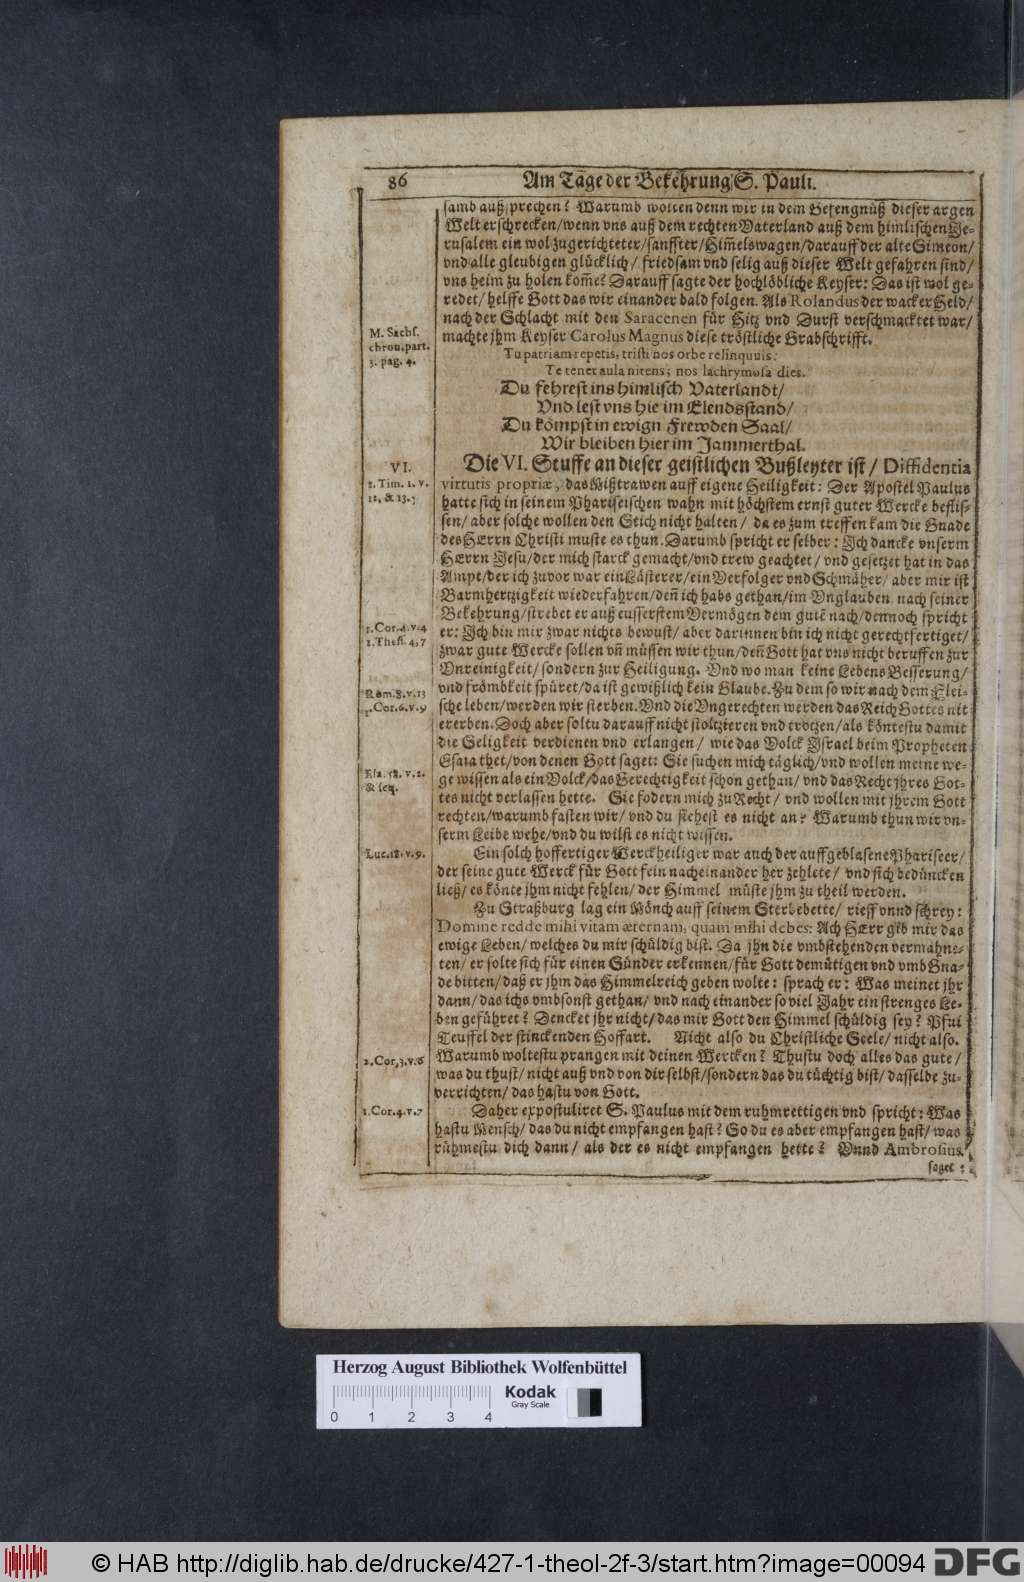 86 Am Tage der Bekehrung S. Pauli.
samb außsprechen? Warumb wolten denn wir in dem Gefengnüß dieser argen
Welt erschrecken/ wenn vns auß dem rechten Vaterland auß dem himlischen Je-
rusalem ein wol zugerichteter/ sanffter/ Him̃elswagen/ darauff der alte Simeon/
vnd alle gleubigen glücklich/ friedsam vnd selig auß dieser Welt gefahren sind/
vns heim zu holen kom̃e? Darauff sagte der hochlöbliche Keyser: Das ist wol ge-
redet/ helffe Gott das wir einander bald folgen. Als Rolandus der wacker Held/
nach der Schlacht mit den Saracenen für Hitz vnd Durst verschmacktet war/
machte jhm Keyser Carolus Magnus diese tröstliche Grabschrifft.
M. Sachs.
chron. part.
3. pag. 4.
Tu patriam repetis, tristi nos orbe relinquuis:
Te tenet aula nitens; nos lachrymosa dies.
Du fehrest ins himlisch Vaterlandt/
Vnd lest vns hie im Elendsstand/
Du kömpst in ewign Frewden Saal/
Wir bleiben hier im Jammerthal.
VI.
Die VI. Stuffe an dieser geistlichen Bußleyter ist/ Diffidentia
virtutis propriæ, das Mißtrawen auff eigene Heiligkeit: Der Apostel Paulus
hatte sich in seinem Phariseischen wahn mit höchstem ernst guter Wercke beflis-
sen/ aber solche wollen den Stich nicht halten/ da es zum treffen kam die Gnade
des HErrn Christi muste es thun. Darumb spricht er selber: Ich dancke vnserm
HErrn Jesu/ der mich starck gemacht/ vnd trew geachtet/ vnd gesetzet hat in das
Ampt/ der ich zuvor war ein Lästerer/ ein Verfolger vnd Schmäher/ aber mir ist
Barmhertzigkeit wiederfahren/ deñ ich habs gethan/ im Vnglauben. nach seiner
Bekehrung/ strebet er auß eusserstem Vermögen dem gutẽ nach/ dennoch spricht
er: Ich bin mir zwar nichts bewust/ aber darinnen bin ich nicht gerechtfertiget/
zwar gute Wercke sollen vñ müssen wir thun/ deñ Gott hat vns nicht beruffen zur
Vnreinigkeit/ sondern zur Heiligung. Vnd wo man keine Lebens Besserung/
vnd frömbkeit spüret/ da ist gewißlich kein Glaube. Zu dem so wir nach dem Flei-
sche leben/ werden wir sterben. Vnd die Vngerechten werden das Reich Gottes nit
ererben. Doch aber soltu darauff nicht stoltzieren vnd trotzen/ als köntestu damit
die Seligkeit verdienen vnd erlangen/ wie das Volck Israel beim Propheten
Esaia thet/ von denen Gott saget: Sie suchen mich täglich/ vnd wollen meine we-
ge wissen als ein Volck/ das Gerechtigkeit schon gethan/ vnd das Recht jhres Got-
tes nicht verlassen hette. Sie fodern mich zu Recht/ vnd wollen mit jhrem Gott
rechten/ warumb fasten wir/ vnd du siehest es nicht an? Warumb thun wir vn-
serm Leibe wehe/ vnd du wilst es nicht wissen.
1. Tim. 1. v.
12. & 13.
1. Cor. 4. v. 4
1. Thess. 4, 7
Rom. 8. v. 13
1. Cor. 6. v. 9
Esa. 58. v. 2.
& seq.
Luc. 18. v. 9.
Ein solch hoffertiger Werckheiliger war auch der auffgeblasene Phariseer/
der seine gute Werck für Gott fein nacheinander her zehlete/ vnd sich bedüncken
ließ/ es könte jhm nicht fehlen/ der Himmel müste jhm zu theil werden.
Zu Straßburg lag ein Mönch auff seinem Sterbebette/ rieff vnnd schrey:
Domine redde mihi vitam æternam, quam mihi debes: Ach HErr gib mir das
ewige Leben/ welches du mir schüldig bist. Da jhn die vmbstehenden vermahne-
ten/ er solte sich für einen Sünder erkennen/ für Gott demütigen vnd vmb Gna-
de bitten/ daß er jhm das Himmelreich geben wolte: sprach er: Was meinet jhr
dann/ das ichs vmbsonst gethan/ vnd nach einander so viel Jahr ein strenges Le-
ben geführet? Dencket jhr nicht/ das mir Gott den Himmel schüldig sey? Pfui
Teuffel der stinckenden Hoffart. Nicht also du Christliche Seele/ nicht also.
Warumb woltestu prangen mit deinen Wercken? Thustu doch alles das gute/
was du thust/ nicht auß vnd von dir selbst/ sondern das du tüchtig bist/ dasselbe zu-
verrichten/ das hastu von Gott.
2. Cor, 3. v. 6
1. Cor. 4. v. 7
Daher expostuliret S. Paulus mit dem ruhmrettigen vnd spricht: Was
hastu Mensch/ das du nicht empfangen hast? So du es aber empfangen hast/ was
rühmestu dich dann/ als der es nicht empfangen hette? Vnnd Ambrosius
saget:
Herzog August Bibliothek Wolfenbüttel
0 1 2 3 4
Kodak
Gray Scale
© HAB http://diglib.hab.de/drucke/427-1-theol-2f-3/start.htm?image=00094
DFG